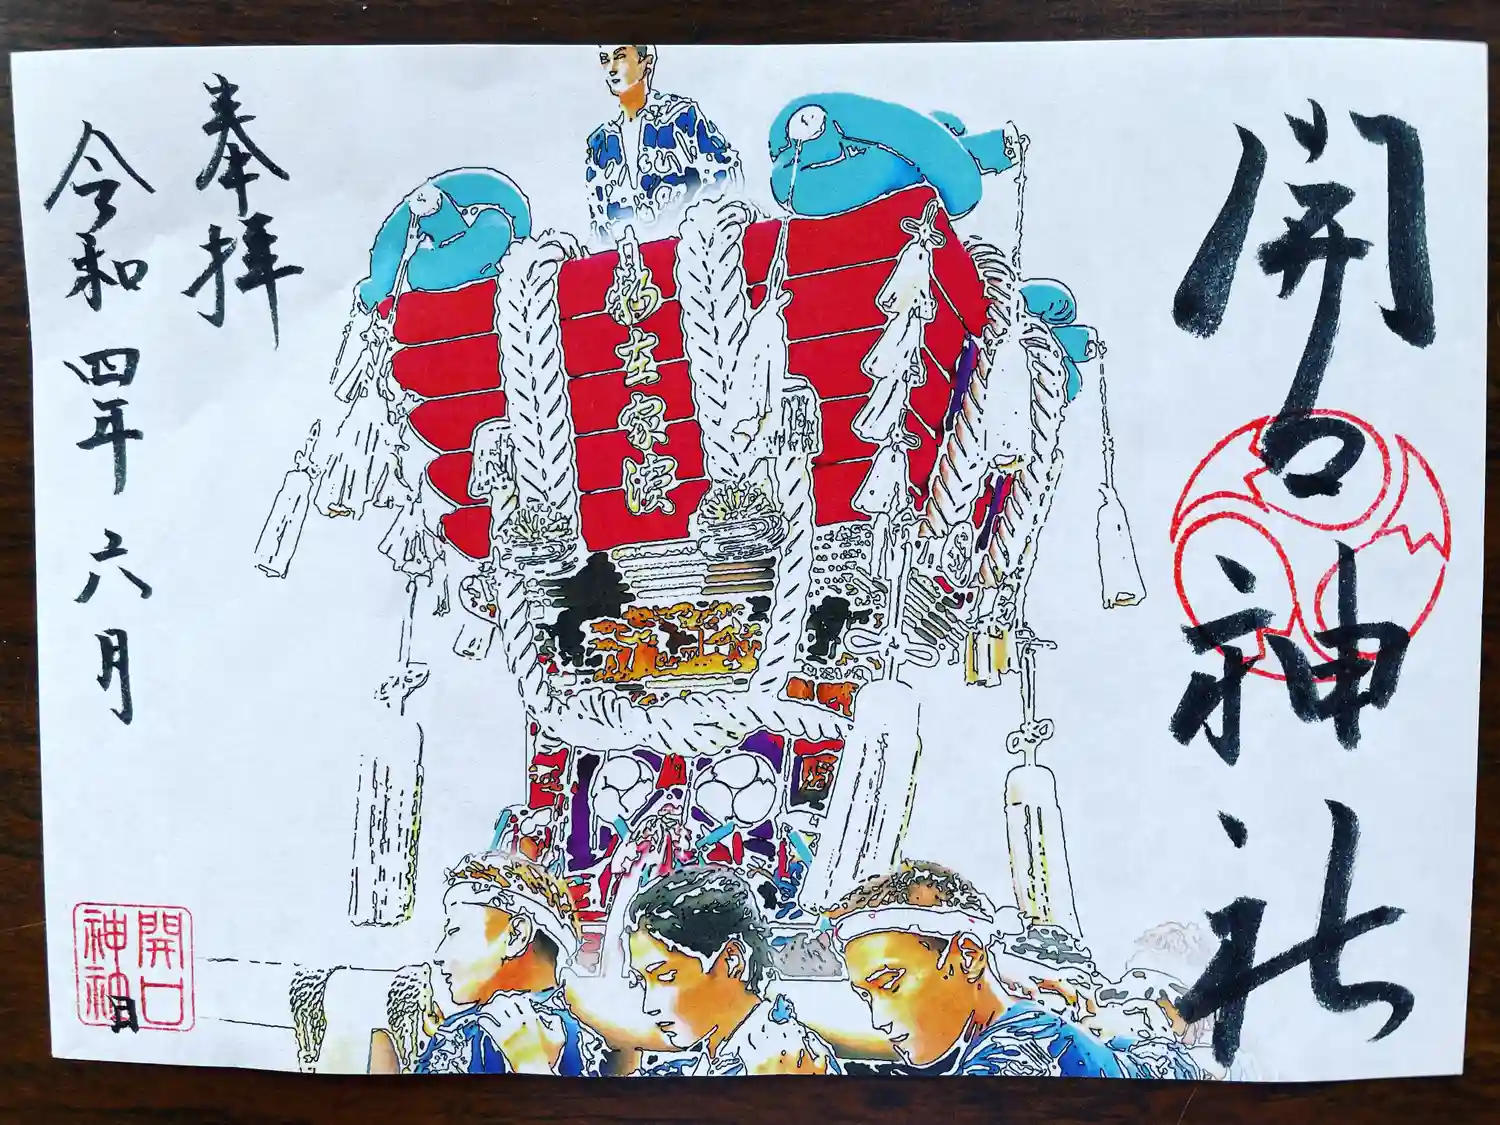 開口神社
奉拝
令和四年六月
日
開口
神社